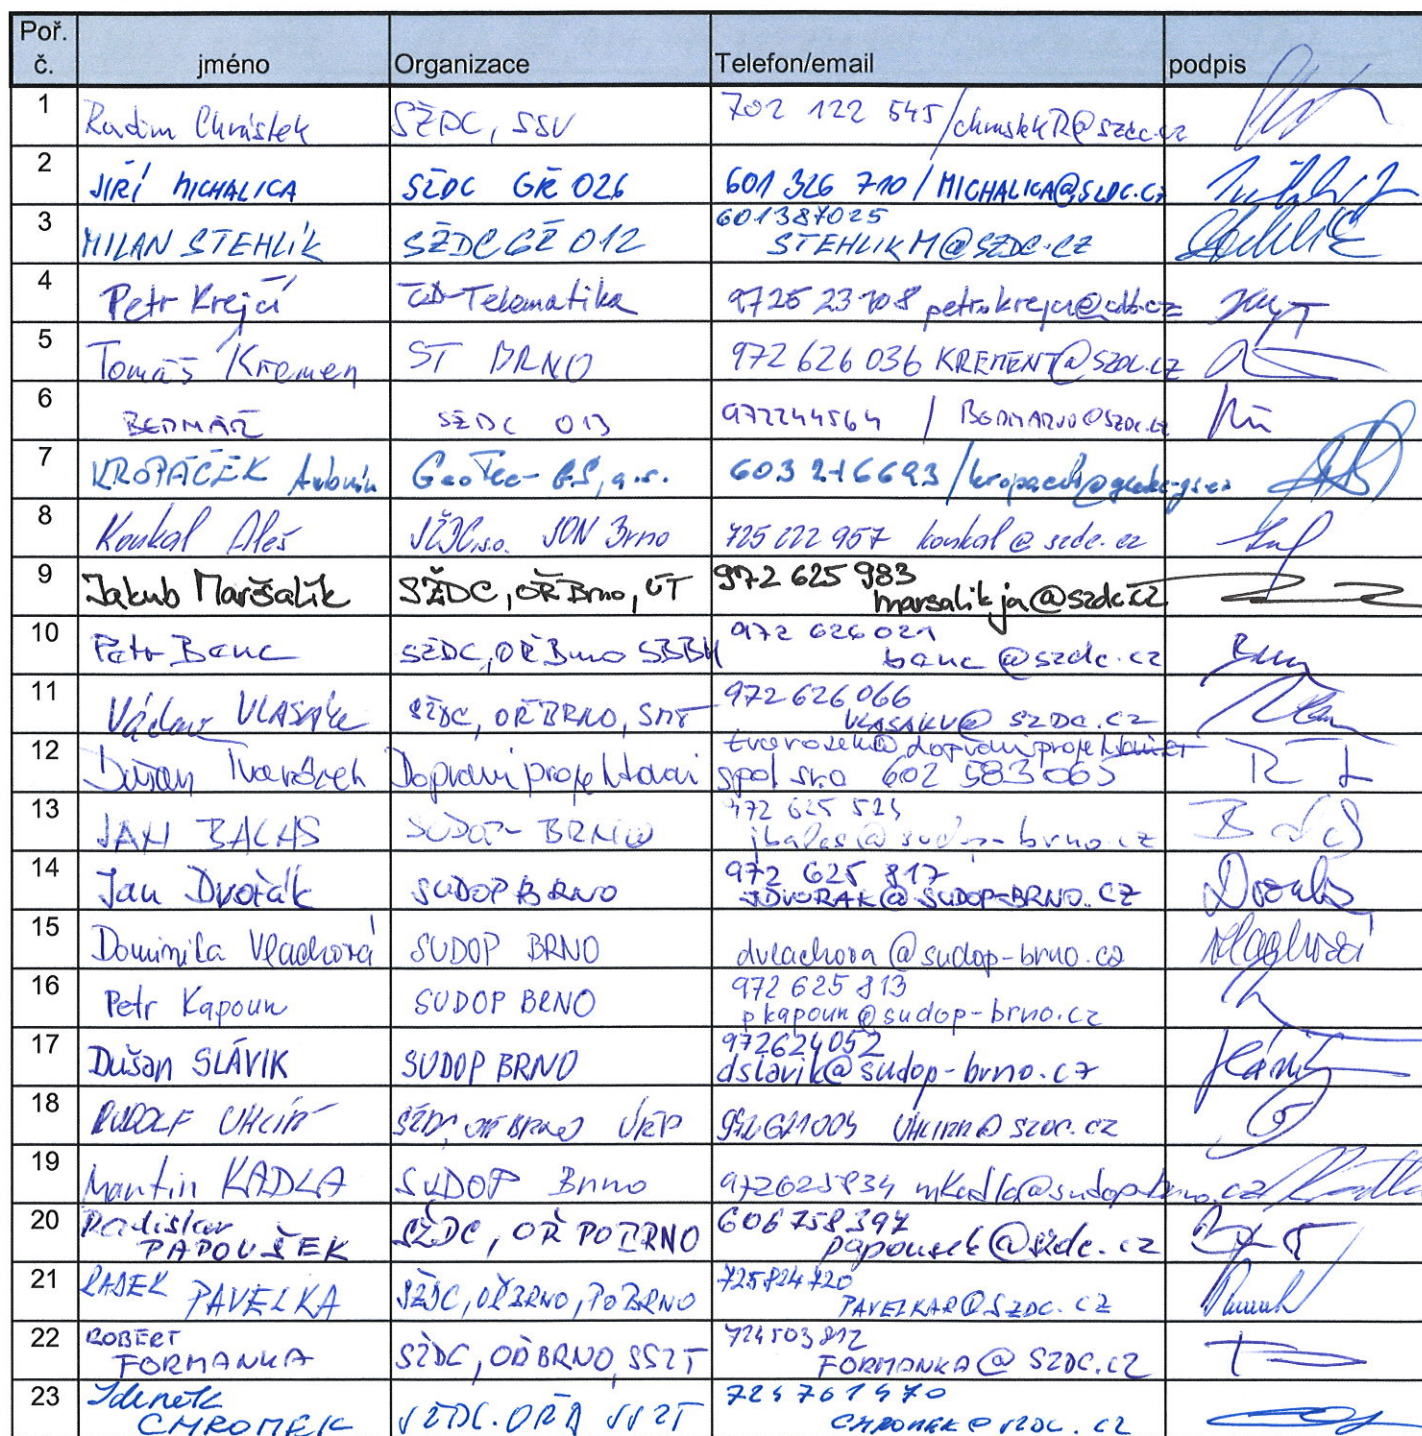 Poř. č. jméno Organizace Telefon/email podpis
1 Radim Chrástek SŽDC, SSV 702 122 545 / chrastekR@szdc.cz
2 JIŘÍ MICHALICA SŽDC GŘ 026 601 326 710 / MICHALICA@SZDC.CZ
3 MILAN STEHLÍK SŽDC GŘ 012 601387025
STEHLIKM@SZDC.CZ
4 Petr Krejčí ČD-Telematika 9725 23108 petr.krejci@cdt.cz
5 Tomáš Kremen ST BRNO 972 626 036 KREMENT@SZDC.CZ
6 SŽDC 013 972244564 /
7 KROPÁČEK Antonín GeoTec-GS, a.s. 603 216693 /
8 Koukal Aleš SŽDC, s.o. SON Brno 725 222 957 koukal@szdc.cz
9 Jakub Maršálik SŽDC, OŘ Brno, ÚT 972 625 983
marsalikja@szdc.cz
10 Petr Banc SŽDC, OŘ Brno SBBH 972 626 021
banc@szdc.cz
11 Václav VLASÁK SŽDC, OŘ BRNO, SMT 972 626 066
VLASAKV@SZDC.CZ
12 Dušan Tvarůžek Dopravní projektování
spol. s r.o. 602 583 065
13 JAN BALAŠ SUDOP BRNO 972 625
jbalas@sudop-brno.cz
14 Jan Dvořák SUDOP BRNO 972 625 817
JDVORAK@SUDOP-BRNO.CZ
15 Dominika Vlachová SUDOP BRNO dvlachova@sudop-brno.cz
16 Petr Kapoun SUDOP BRNO 972 625 813
pkapoun@sudop-brno.cz
17 Dušan SLÁVIK SUDOP BRNO 972624052
dslavik@sudop-brno.cz
18 RUDOLF UHLÍŘ SŽDC, OŘ BRNO
19 Martin KADLA SUDOP Brno 972625834 mkadla@sudop-brno.cz
20 Radislav
PAPOUŠEK SŽDC, OŘ PO BRNO 606 758 397
papousek@szdc.cz
21 RADEK PAVELKA SŽDC, OŘ BRNO, PO BRNO 725824720
PAVELKAR@SZDC.CZ
22 ROBERT
FORMANKA SŽDC, OŘ BRNO, SSZT 724503812
FORMANKA@SZDC.CZ
23 Zdeněk
CHROMEK SSZT 724 761 470
CHROMEK@SZDC.CZ